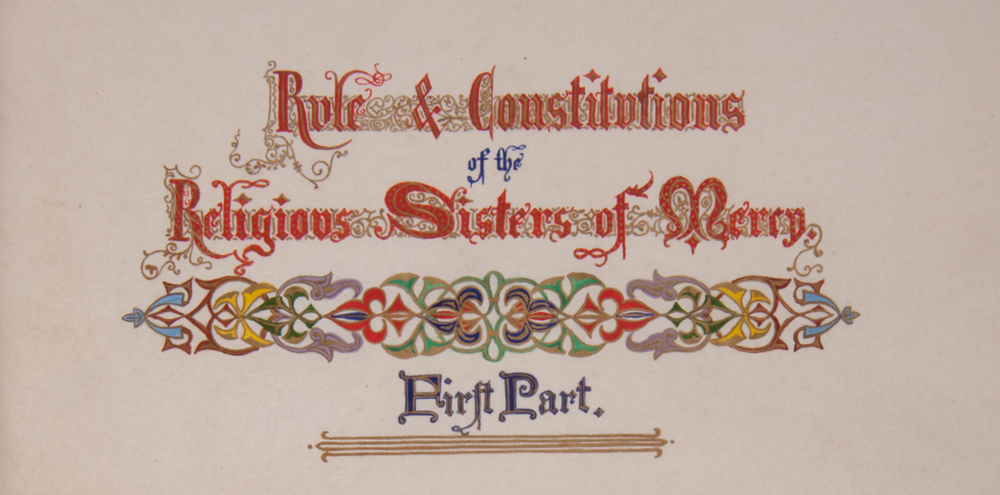 Rule & Constitutions
of the
Religious Sisters of Mercy.
First Part.